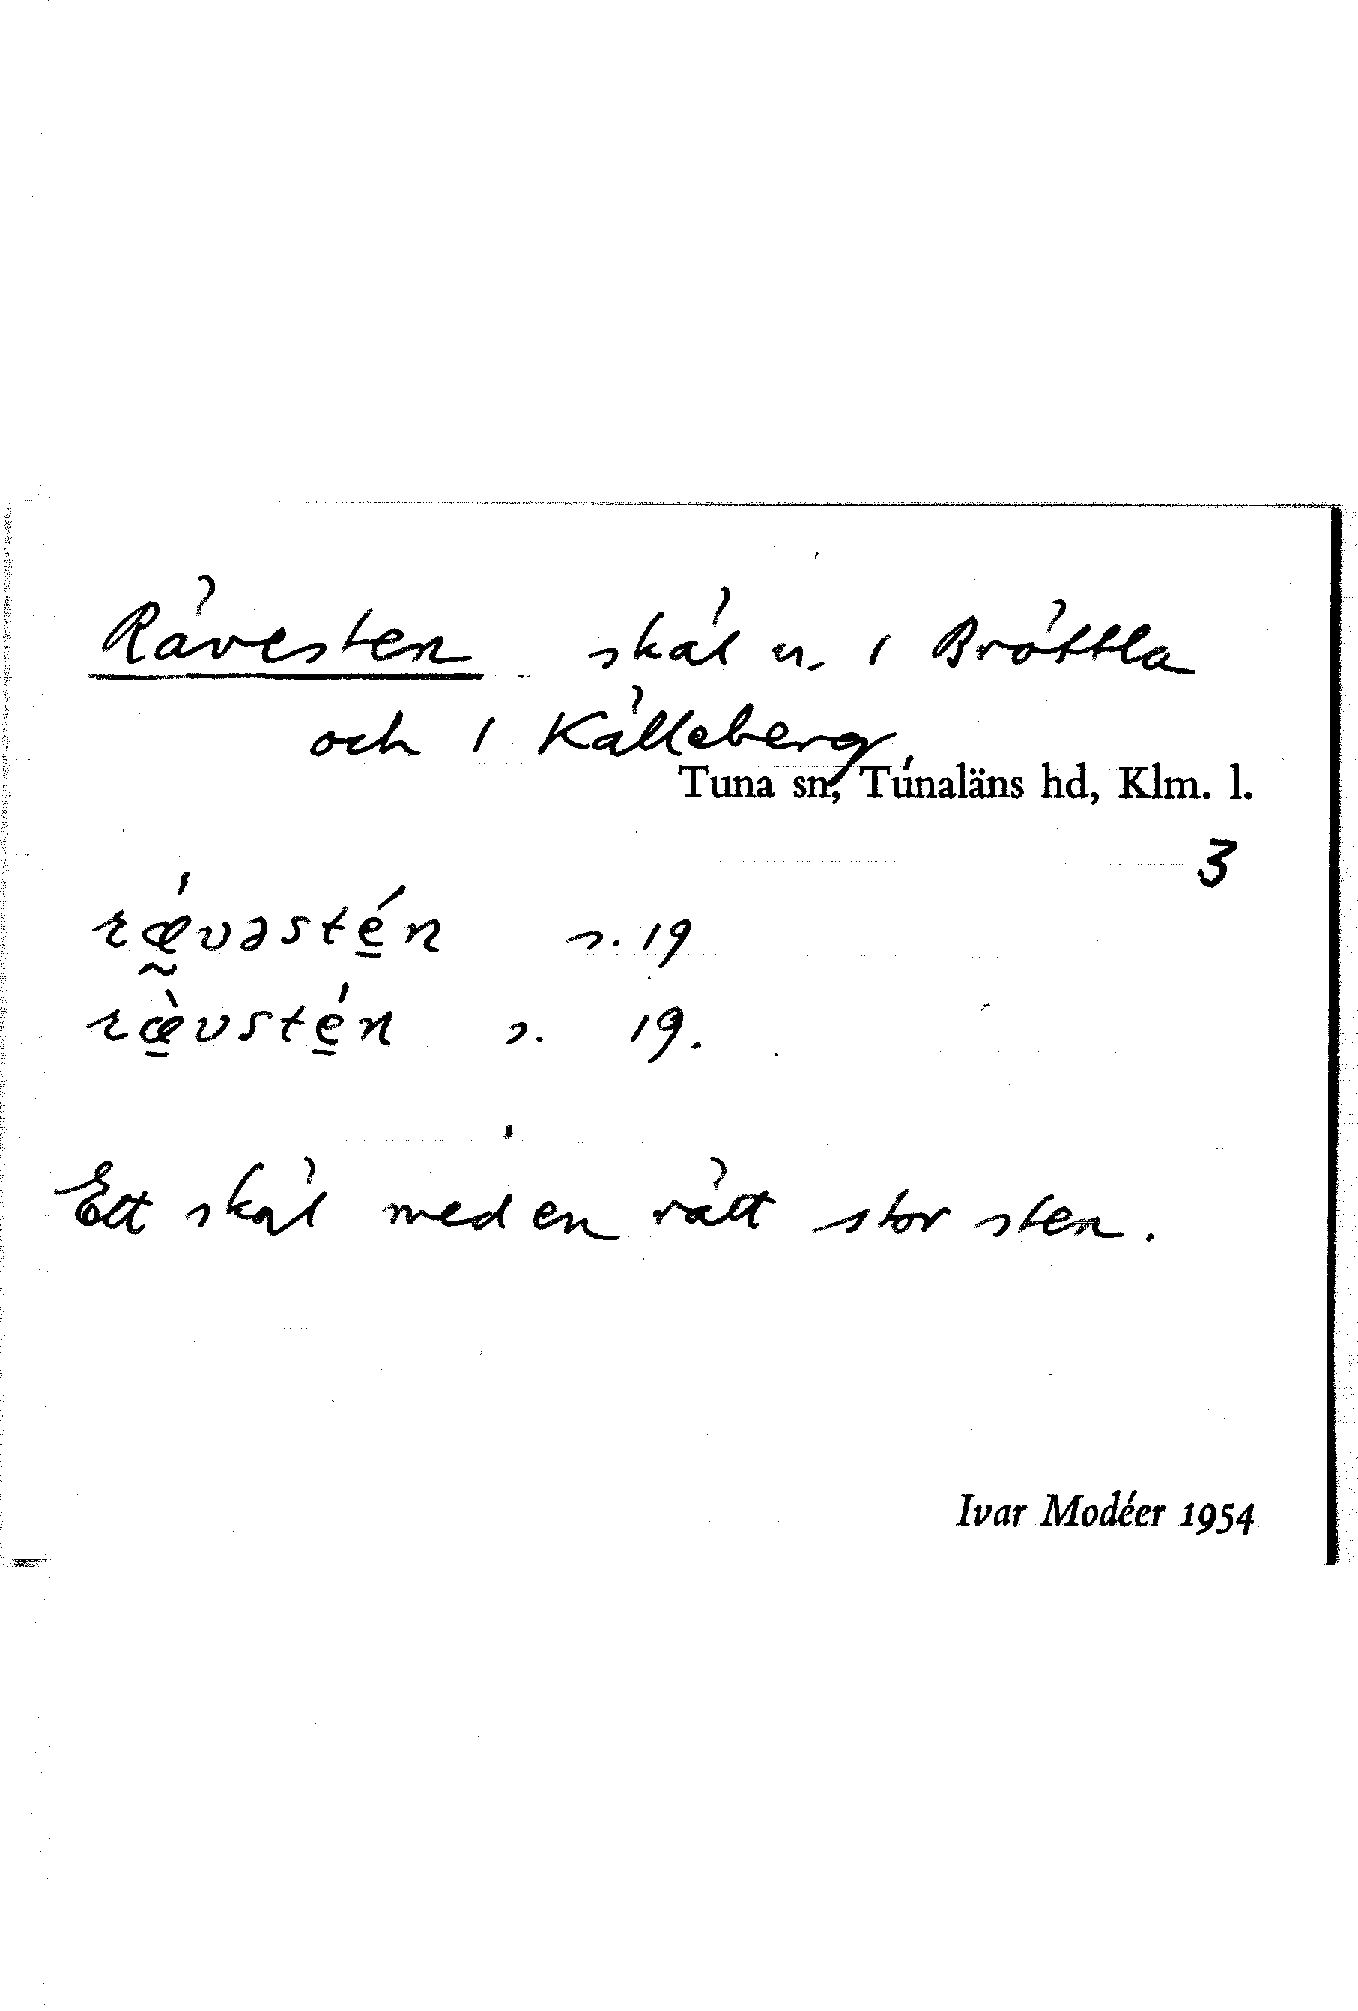 Rävesten skäl n. i Bröttla
och i Källeberg
Tuna sn, Tunaläns hd, Klm. l.
3
rǽ̰vəsté̱n s. 19
ræ̱̀vsté̱n s. 19.
Ett skäl med en rätt stor sten.
Ivar Modéer 1954